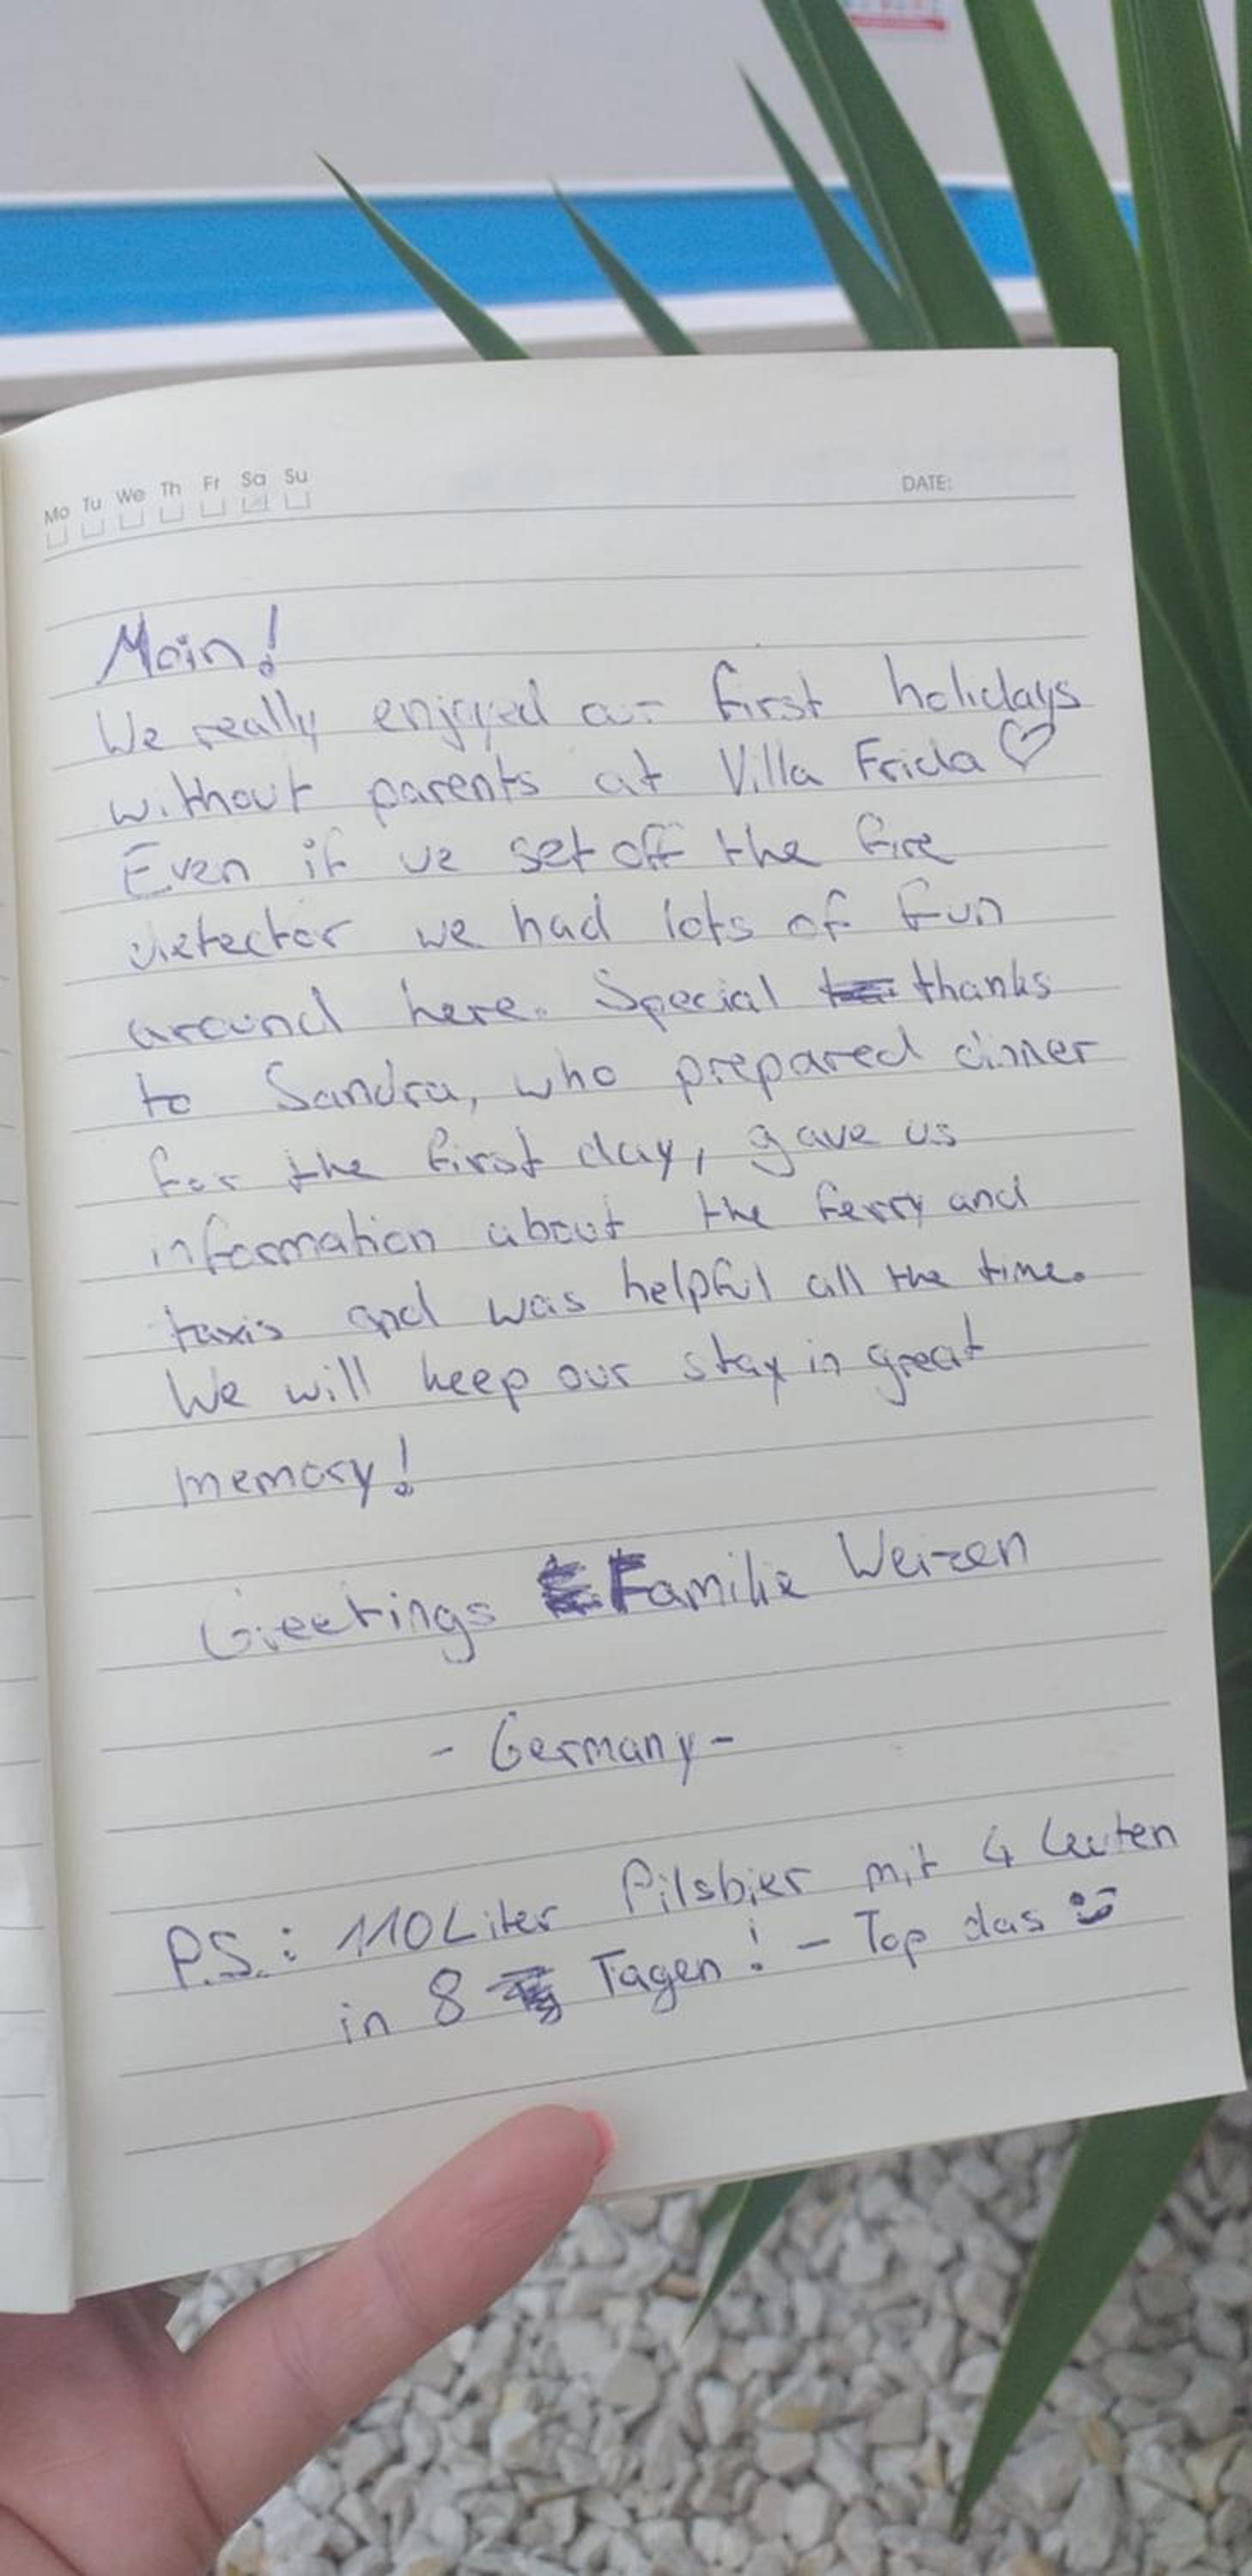 Mo Tu We Th Fr Sa Su
DATE:
Moin!
We really enjoyed our first holidays
without parents at Villa Frida ♡
Even if we set off the fire
detector we had lots of fun
around here. Special thanks
to Sandra, who prepared dinner
for the first day, gave us
information about the ferry and
taxis and was helpful all the time.
We will keep our stay in great
memory!
Greetings Familie Weizen
- Germany -
P.S.: 110 Liter Pilsbier mit 4 Leuten
in 8 Tagen! - Top das :)